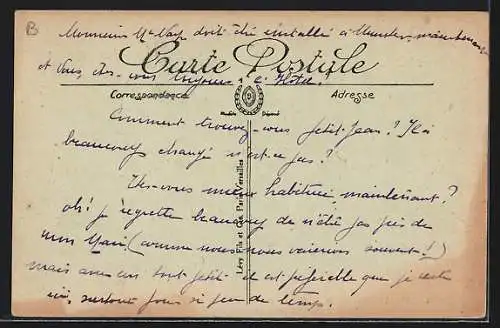 B
Monsieur doit être installé à Munster, maintenant
et vous, êtes-vous toujours à l'Hôtel.
Carte Postale
Correspondance
Adresse
Modèle Déposé
Comment trouvez-vous petit Jean? Il a
beaucoup changé n'est-ce pas?
Êtes-vous mieux habituée, maintenant?
oh! je regrette beaucoup de n'être pas près de
mon Mari (comme nous nous verrions souvent!)
mais avec un tout petit - il est préférable que je reste
ici, surtout pour si peu de temps.
Lévy Fils et Cie, Paris-Versailles